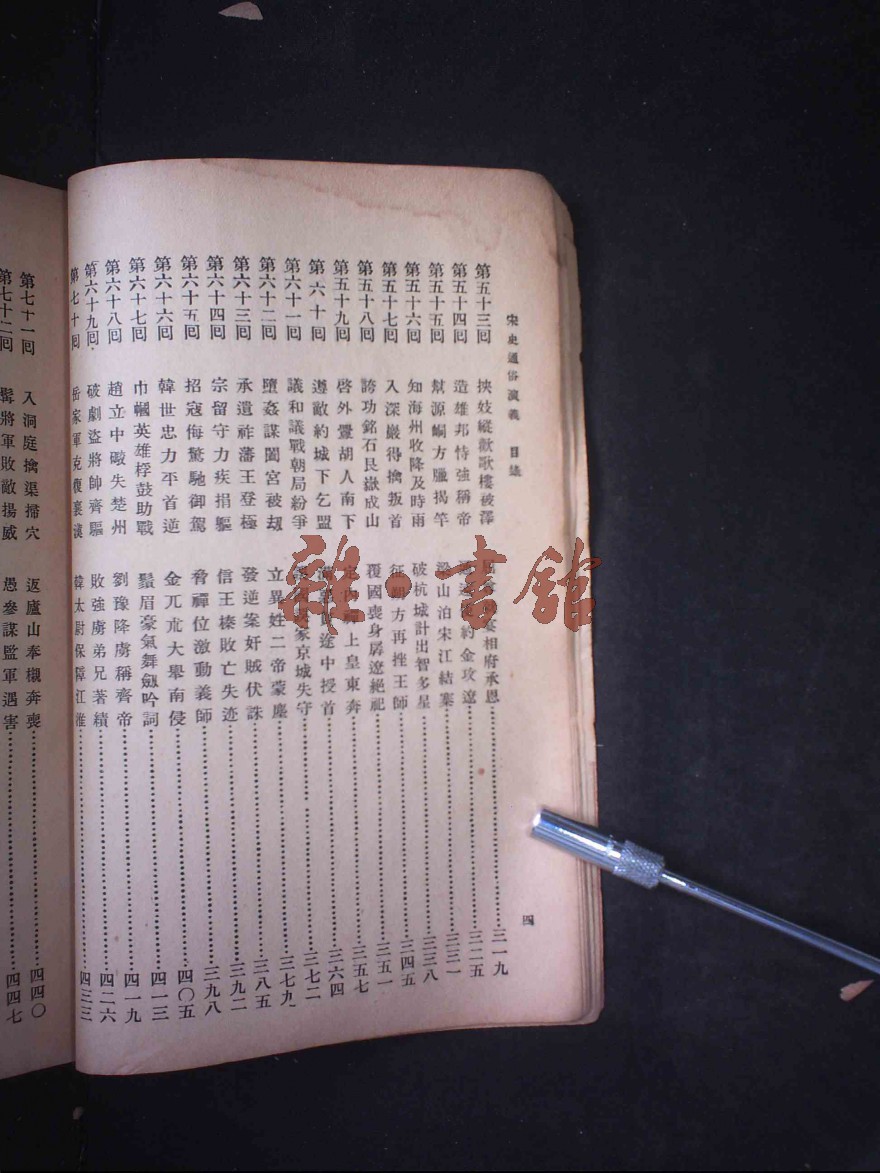 宋史通俗演義 目錄 四
第五十三囘 挾妓縱歡歌樓被澤 相府承恩……三一九
第五十四囘 造雄邦恃強稱帝 約金攻遼……三二五
第五十五囘 幫源峒方臘揭竿 梁山泊宋江結寨……三三一
第五十六囘 知海州收降及時雨 破杭城計出智多星……三三八
第五十七囘 入深巖得擒叛首 征朔方再挫王師……三四五
第五十八囘 誇功銘石艮嶽成山 覆國喪身孱遼絕祀……三五一
第五十九囘 啓外釁胡人南下 上皇東奔……三五七
第六十囘 遵敵約城下乞盟 途中授首……三六四
第六十一囘 議和議戰朝局紛爭 喪家京城失守……三七二
第六十二囘 墮姦謀闔宮被劫 立異姓二帝蒙塵……三七九
第六十三囘 承遺祚藩王登極 發逆案奸賊伏誅……三八五
第六十四囘 宗留守力疾捐軀 信王榛敗亡失迹……三九二
第六十五囘 招寇侮驚馳御駕 脅禪位激動義師……三九八
第六十六囘 韓世忠力平首逆 金兀朮大舉南侵……四〇五
第六十七囘 巾幗英雄桴鼓助戰 鬚眉豪氣舞劍吟詞……四一三
第六十八囘 趙立中礮失楚州 劉豫降虜稱齊帝……四一九
第六十九囘 破劇盜將帥齊驅 敗強虜弟兄著績……四二六
第七十囘 岳家軍克復襄漢 韓太尉保障江淮……四三三
第七十一囘 入洞庭擒渠掃穴 返廬山奉櫬奔喪……四四〇
第七十二囘 髯將軍敗敵揚威 愚參謀監軍遇害……四四七
雜·書館